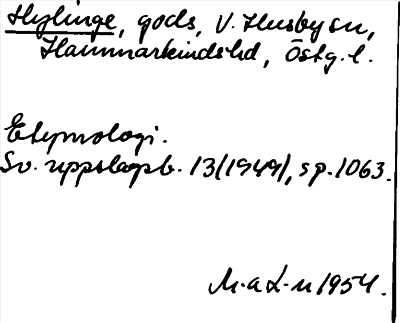 Hylinge, gods, V. Husby sn,
Hammarkinds hd, Östg. l.
Etymologi.
Sv. uppslagsb. 13 (1949), sp. 1063.
M. a L-n 1954.